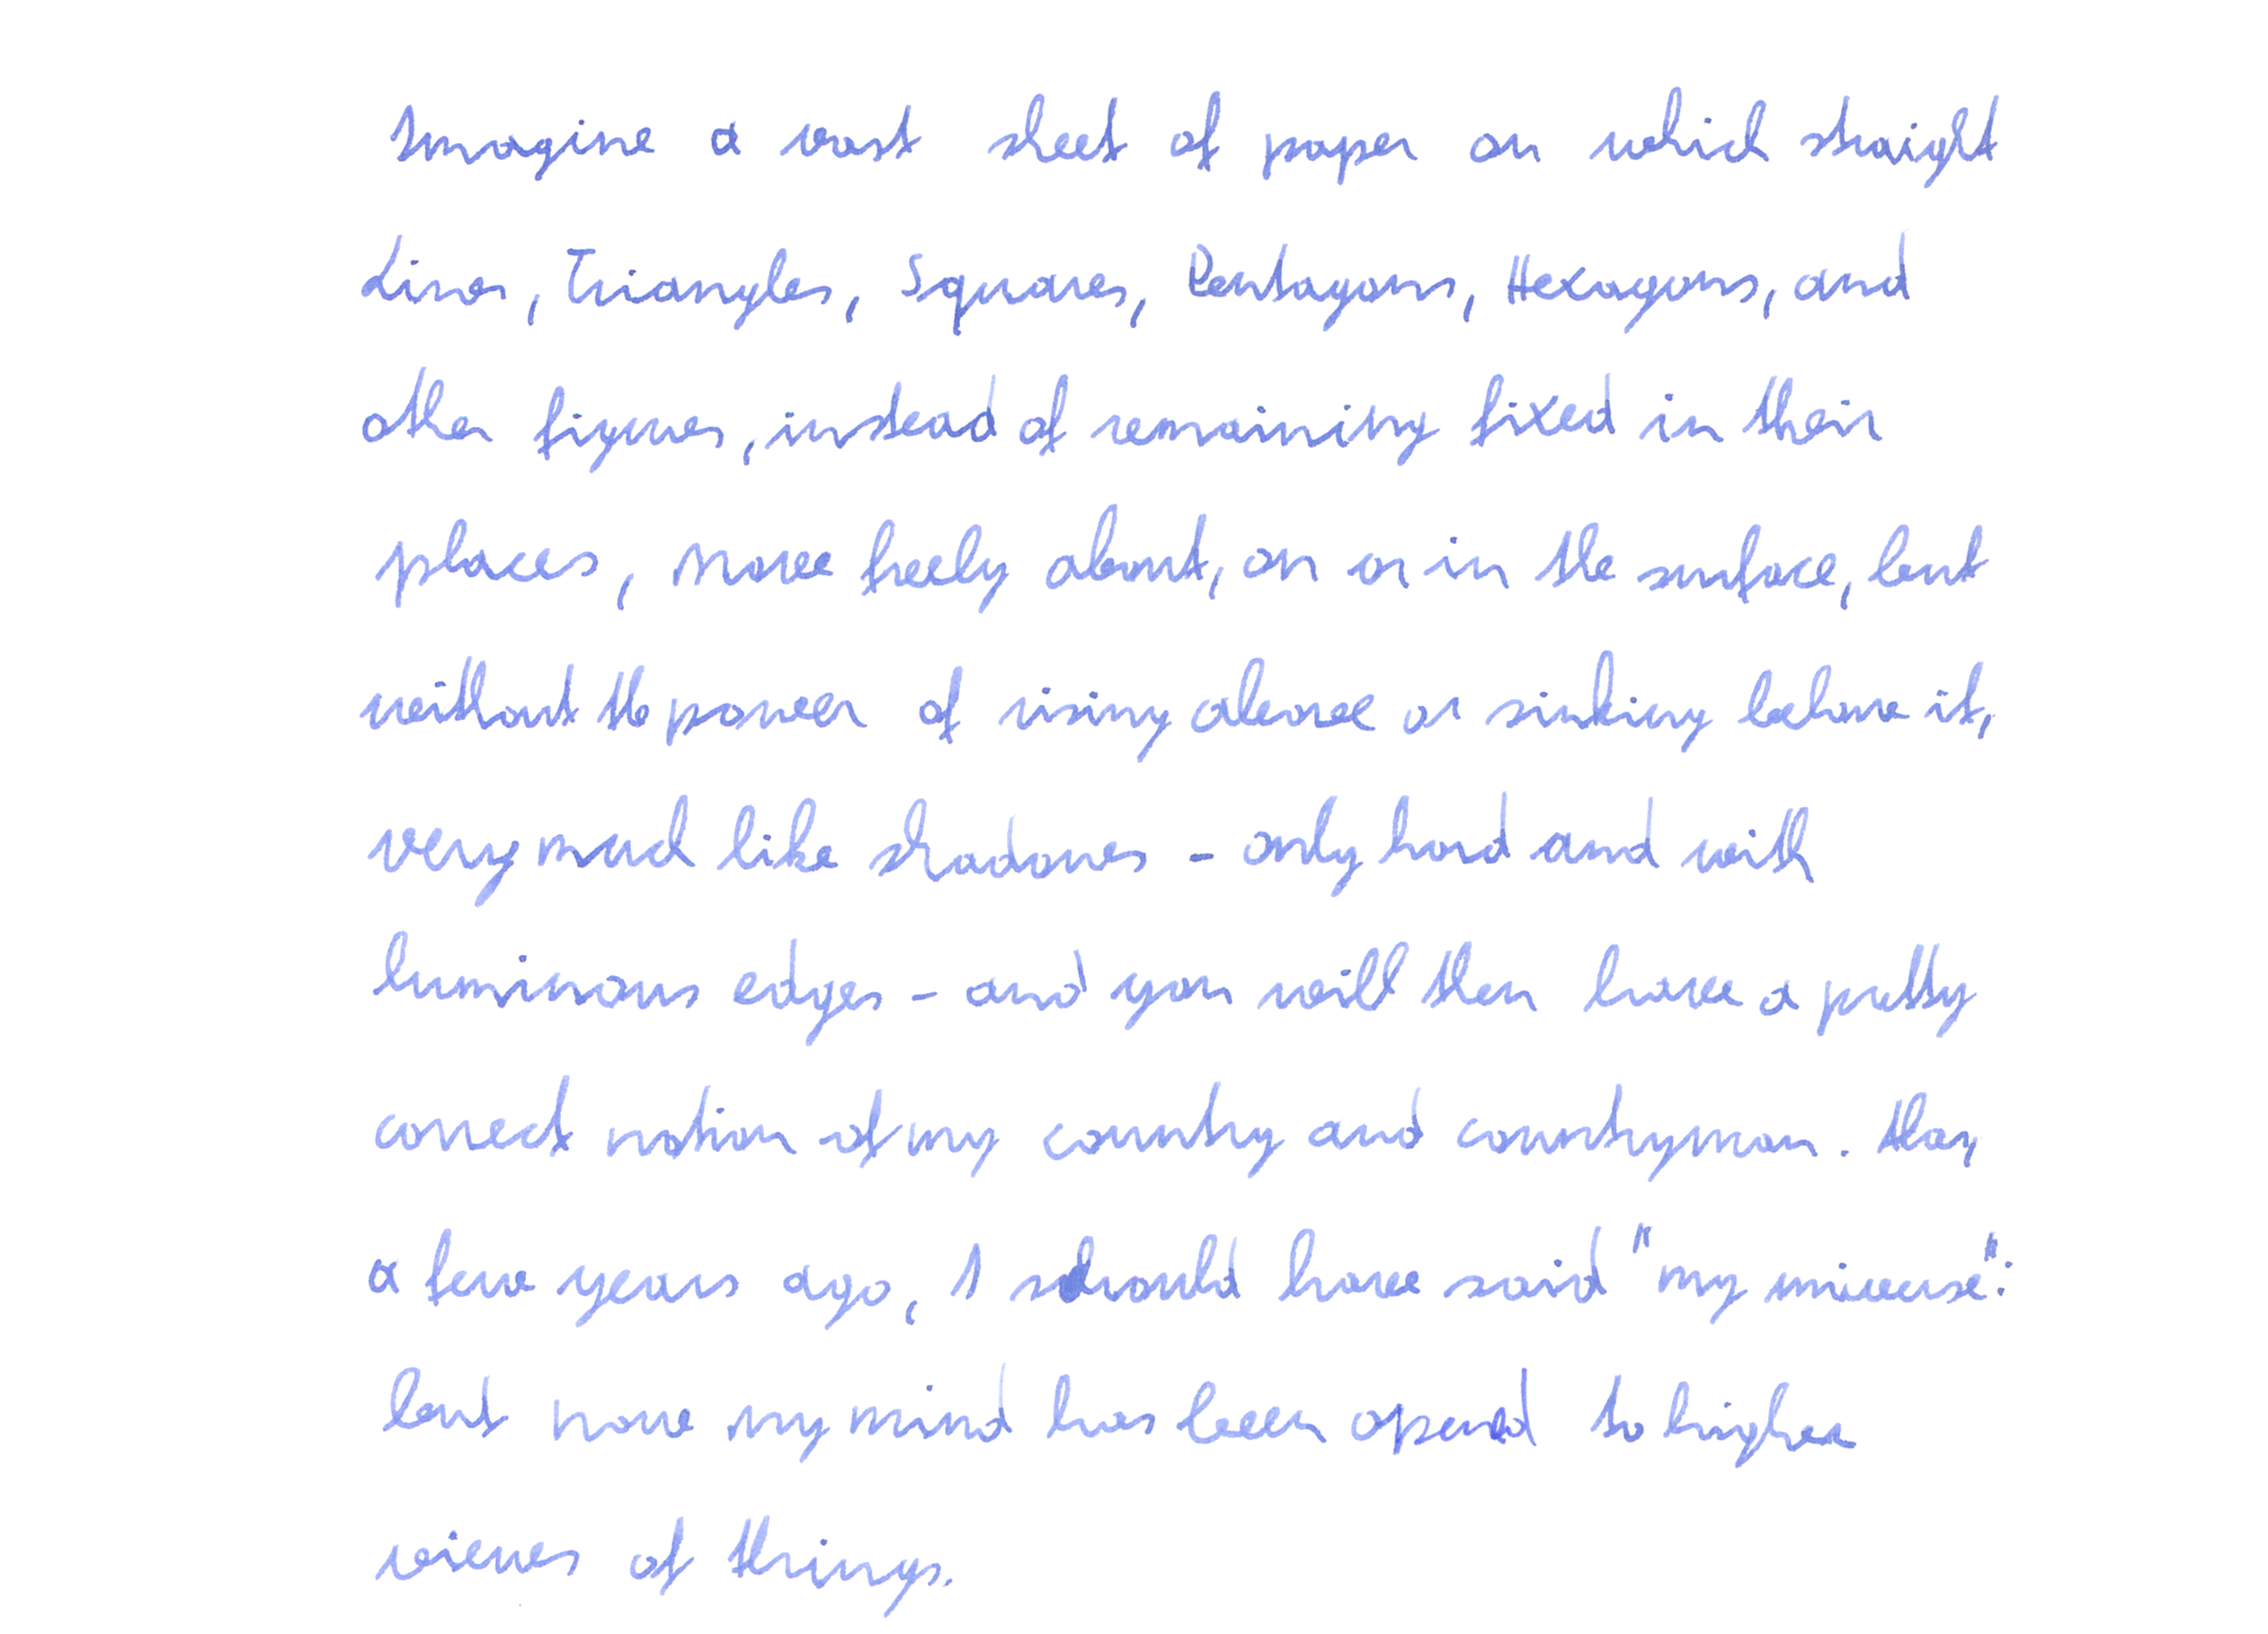 Imagine a vast sheet of paper on which straight
Lines, Triangles, Squares, Pentagons, Hexagons, and
other figures, instead of remaining fixed in their
places, move freely about, on or in the surface, but
without the power of rising above or sinking below it,
very much like shadows - only hard and with
luminous edges - and you will then have a pretty
correct notion of my country and countrymen.
a few years ago, I should have said "my universe":
but now my mind has been opened to higher
views of things.